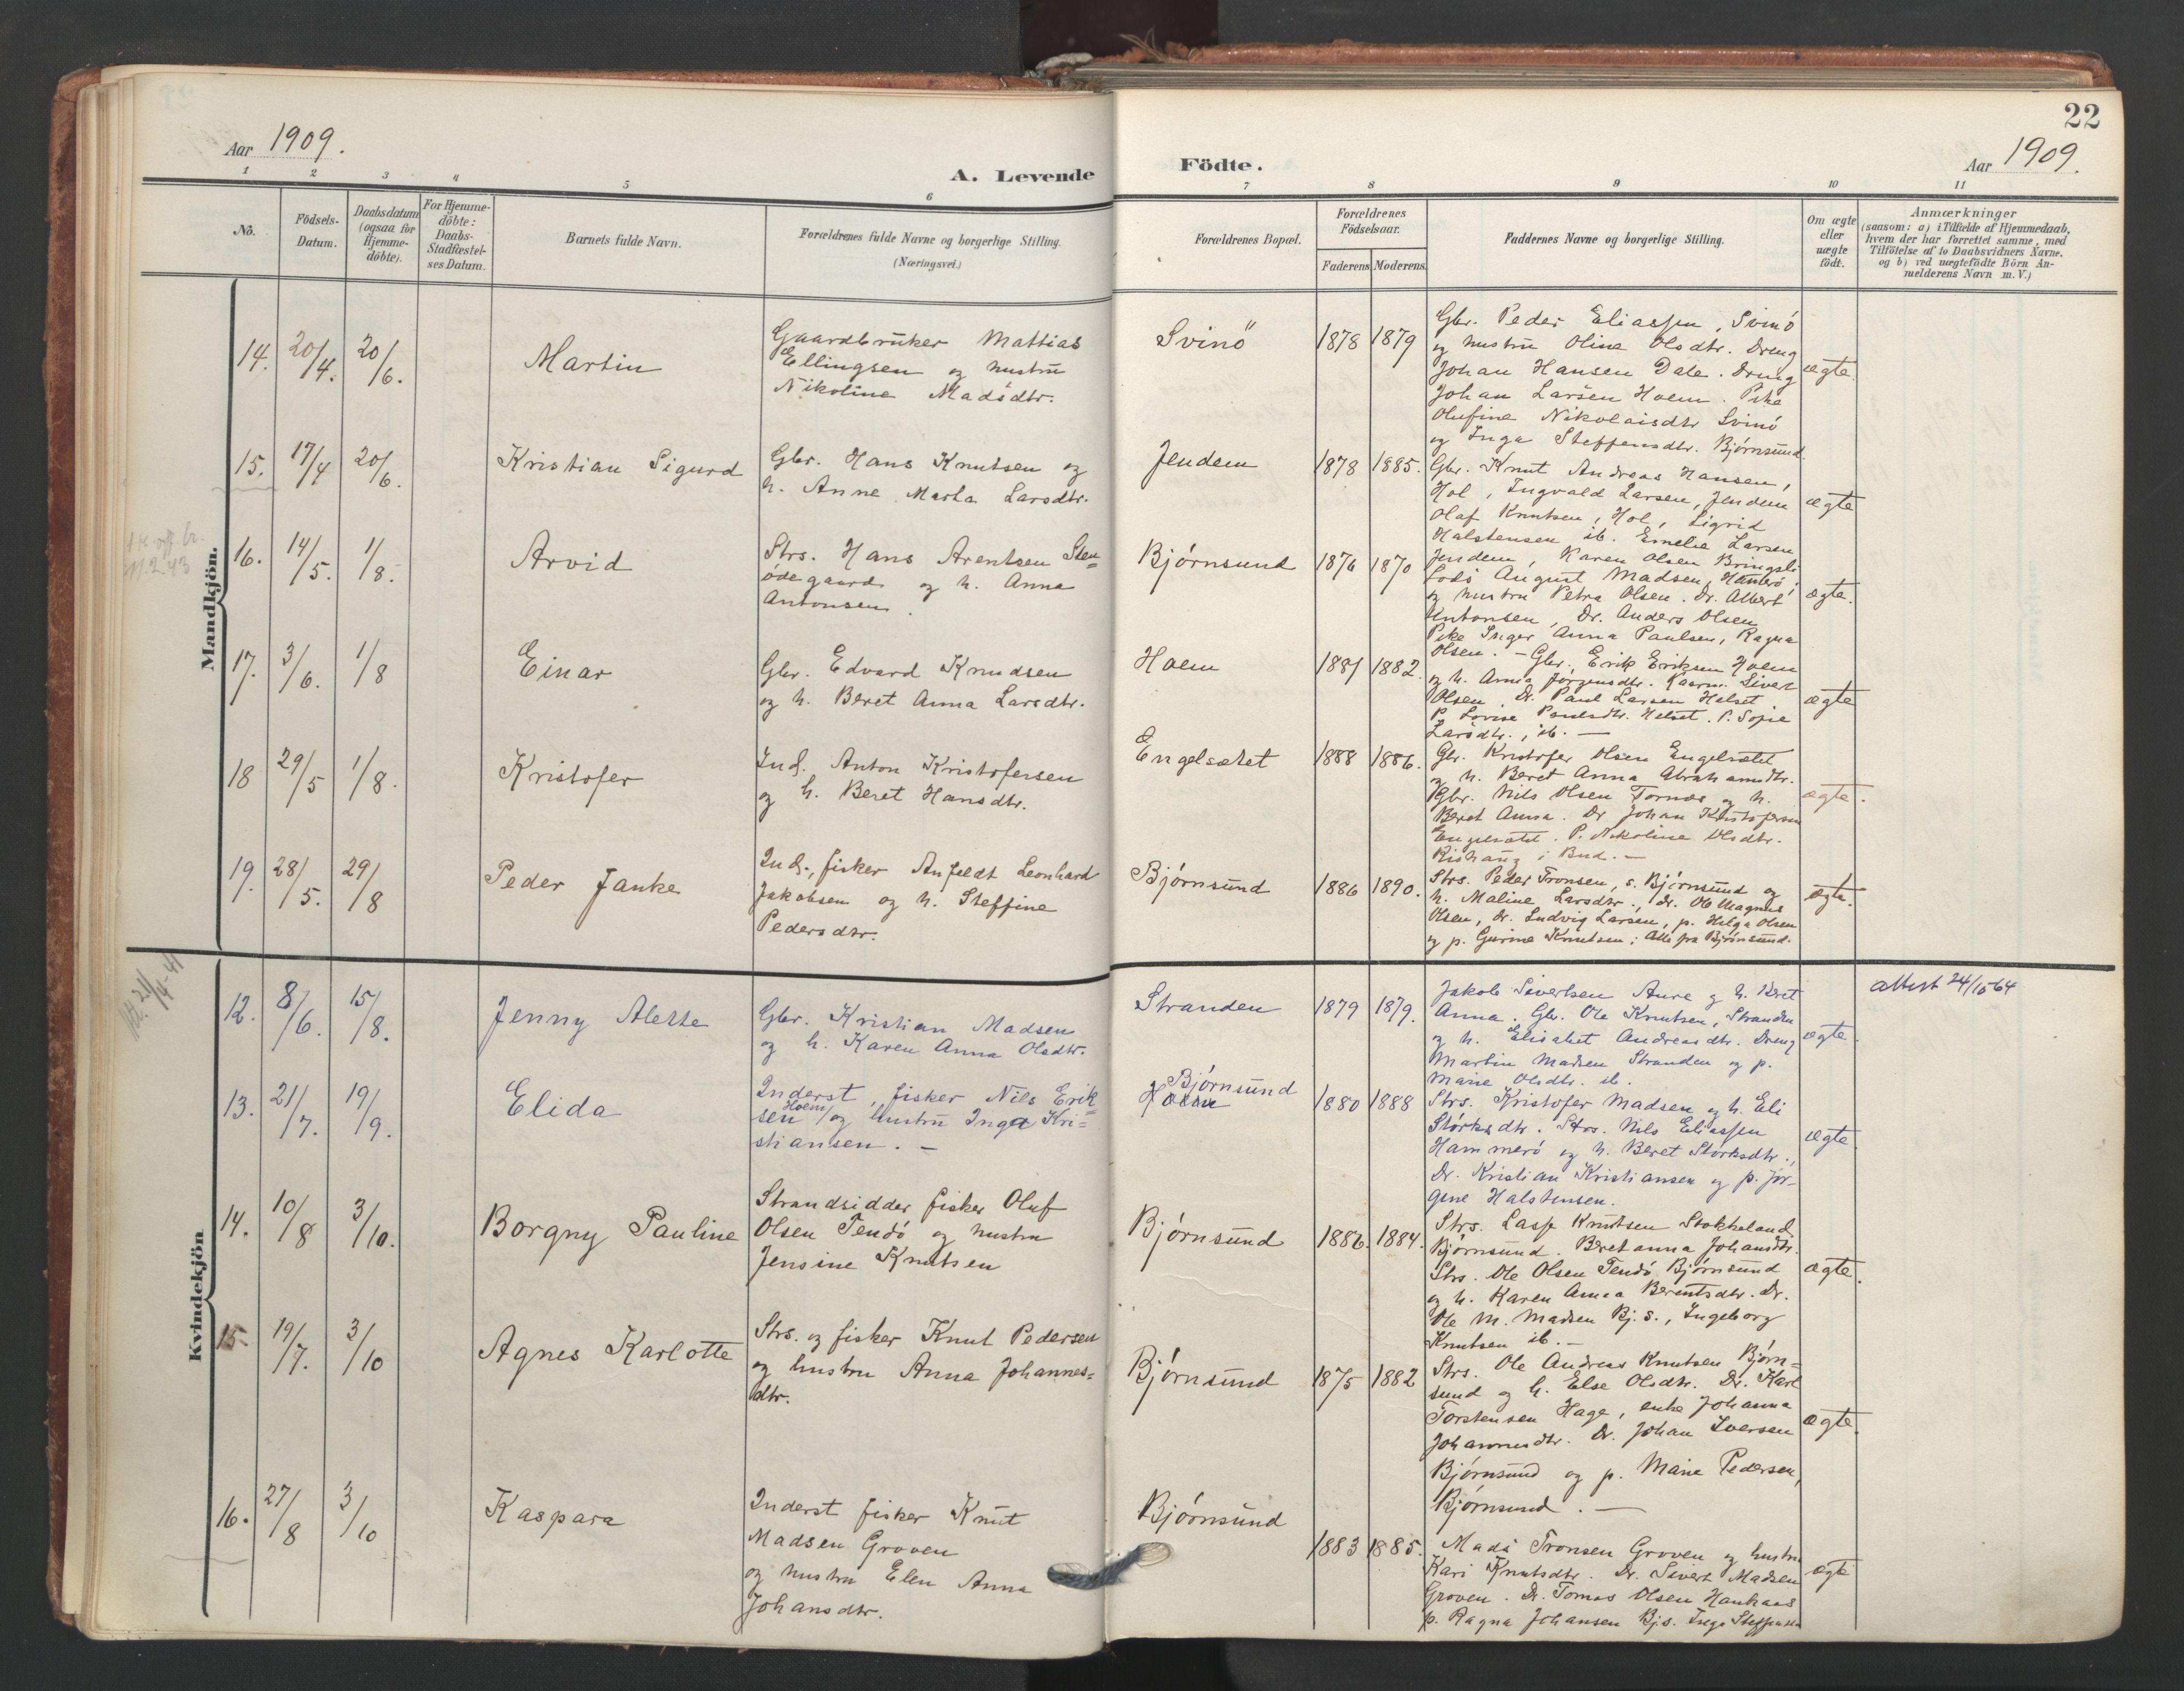 22
Aar 1909.
A. Levende
Födte.
Aar 1909.
1 2 3 4 5 6 7 8 9 10 11
No.
Födsels-
Datum.
Daabsdatum
(ogsaa for
Hjemme-
döbte).
For Hjemme-
döbte:
Daabs-
Stadfæstel-
ses Datum.
Barnets fulde Navn.
Forældrenes fulde Navne og borgerlige Stilling.
(Næringsvei.)
Forældrenes Bopæl.
Forældrenes
Födselsaar.
Faderens. Moderens.
Faddernes Navne og borgerlige Stilling.
Om ægte
eller
uægte
födt.
Anmærkninger
(saasom: a) i Tilfælde af Hjemmedaab,
hvem der har forrettet samme, med
Tilföielse af to Daabsvidners Navne.
og b) ved uægtefödte Börn An-
melderens Navn m.V.)
Mandkjön.
14. 20/4. 20/6. Martin
Gaardbruker Mattias
Ellingsen og hustru
Nikoline Madsdtr.
Svinö 1878 1879
Gbr. Peder Eliassen, Svinö
og hustru Oline Olsdtr. Dreng
Johan Hansen Dale. Dreng
Johan Larsen Holm. Pike
Olufine Nikolaisdtr Svinö
og Inga Steffensdtr. Bjørnsund.
ægte.
15. 17/4 20/6. Kristian Sigurd
Gbr. Hans Knutsen og
h. Anne Marta Larsdtr.
Jendem 1878 1885.
Gbr. Knut Andreas Hansen,
Hol, Ingvald Larsen, Jendem
Olaf Knutsen, Hol, Sigrid
Halstensen ib. Emelie Larsen
Jendem, Karen Olsen Bringsli
ægte
16. 14/5. 1/8. Arvid
Strs. Hans Arentsen Sten=
ødegaard og h. Anna
Antonsen.
Bjørnsund 1876 1870
Lods August Madsen, Hamerö,
og hustru Petra Olsen. Dr. Albert
Antonsen, Dr. Anders Olsen
Pike Inger Anna Paulsen, Ragna
Olsen. –
ægte.
17. 3/6. 1/8 Einar
Gbr. Edvard Knudsen
og h. Beret Anna Larsdtr.
Holm 1881 1882.
Gbr. Erik Eriksen Holm
og h. Anna Jørgensdtr. Sivert
Olsen, Dr. Paul Larsen Helset
P. Lovise Paulsdtr. Helset. P. Sofie
Larsdtr., ib. –
ægte
18 29/5 1/8. Kristofer
Ind. Anton Kristofersen
og h. Beret Hansdtr.
Engelsætet 1888 1886.
Gbr. Kristofer Olsen Engelsætet
og h. Beret Anna Abrahamsdtr.
Gbr. Nils Olsen Tornes og h.
Beret Anna. Dr Johan Kristofersen
Engelsætet. P. Nikoline Olsdtr.
Rishaug i Bud. –
ægte.
19. 28/5. 29/8 Peder Janke
Ind., fisker Anfeldt Leonhard
Jakobsen og h. Steffine
Pedersdtr.
Bjørnsund 1886 1890.
Strs. Peder Tronsen, s. Bjørnsund og
h. Maline Larsdtr., dr. Ole Magnus
Olsen, dr. Ludvig Larsen, p. Helga Olsen
og p. Gurine Knutsen; Alle fra Bjørnsund.
ægte.
Kvindekjön
12. 8/6. 15/8. Jenny Alette
Gbr. Kristian Madsen
og h. Karen Anna Olsdtr.
Stranden 1879 1879.
Jakob Sivertsen Aure og h. Beret
Anna. Gbr. Ole Knutsen, Stranden
og h. Elisabet Andreasdtr. Dreng
Martin Madsen Stranden og p.
Marie Olsdtr. ib.
ægte.
attest 24/10 64
13. 21/7. 19/9. Elida
Inderst, fisker Nils Erik=
sen Holm og hustru Inga Kri=
stiansen. –
Bjørnsund
1880 1888
Strs. Kristofer Madsen og h. Eli
Størksdtr. Strs. Nils Eliassen
Hammerö og h. Beret Størksdtr.,
Dr. Kristian Kristiansen og p. Jør-
gine Halstensen.
ægte.
14. 10/8 3/10. Borgny Pauline
Strandsidder fisker Oluf
Olsen Tendö og hustru
Jensine Knutsen
Bjørnsund 1886. 1884.
Strs. Lasse Knutsen Stokkeland
Bjørnsund. Beret anna Johansdtr.
Strs. Ole Olsen Tendö, Bjørnsund
og h. Karen Anna Berentsdtr. Dr.
Ole M. Madsen Bj. s., Ingeborg
Knutsen ib. –
ægte.
15. 19/7. 3/10 Agnes Karlotte
Strs. og fisker Knut Pedersen
og hustru Anna Johannes=
dtr.
Bjørnsund 1875 1882
Strs. Ole Andreas Knutsen Bjørn=
sund og h. Else Olsdtr. Dr. Karl
Torstensen Hage, enke Johanna
Johannesdtr. Dr. Johan Iversen
Bjørnsund og p. Marie Pedersen,
Bjørnsund. –
ægte.
16. 27/8 3/10 Kaspara
Inderst fisker Knut
Madsen Groven
og hustru Elen Anna
Johansdtr.
Bjørnsund
1883 1885.
Mads Tronsen Groven og hustru
Kari Knutsdtr. Dr. Sivert Madsen
Groven. Dr. Tomas Olsen Haukaas
p. Ragna Johansen Bj.s. Inga Steffensen
ægte